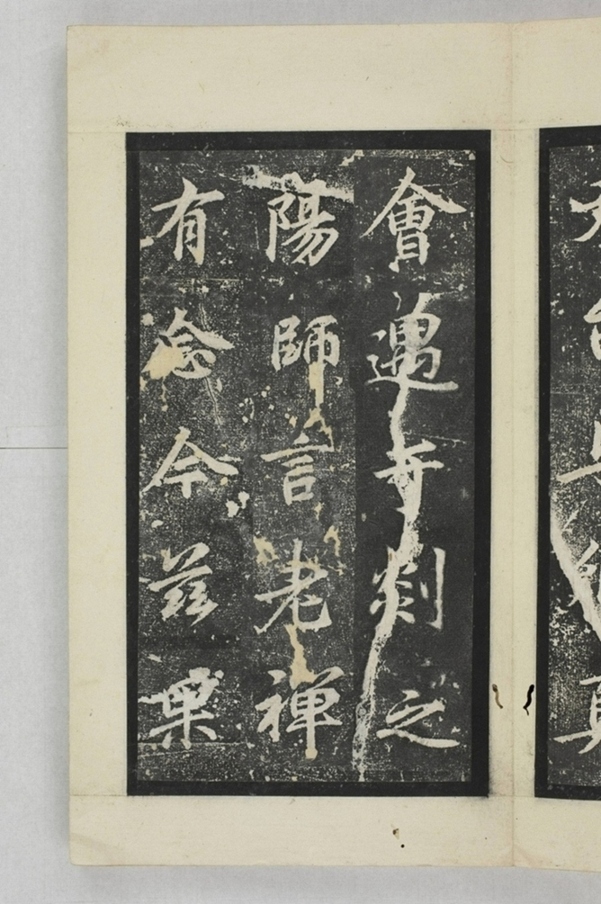 會遇于剡之
陽師言老禪
有念今茲